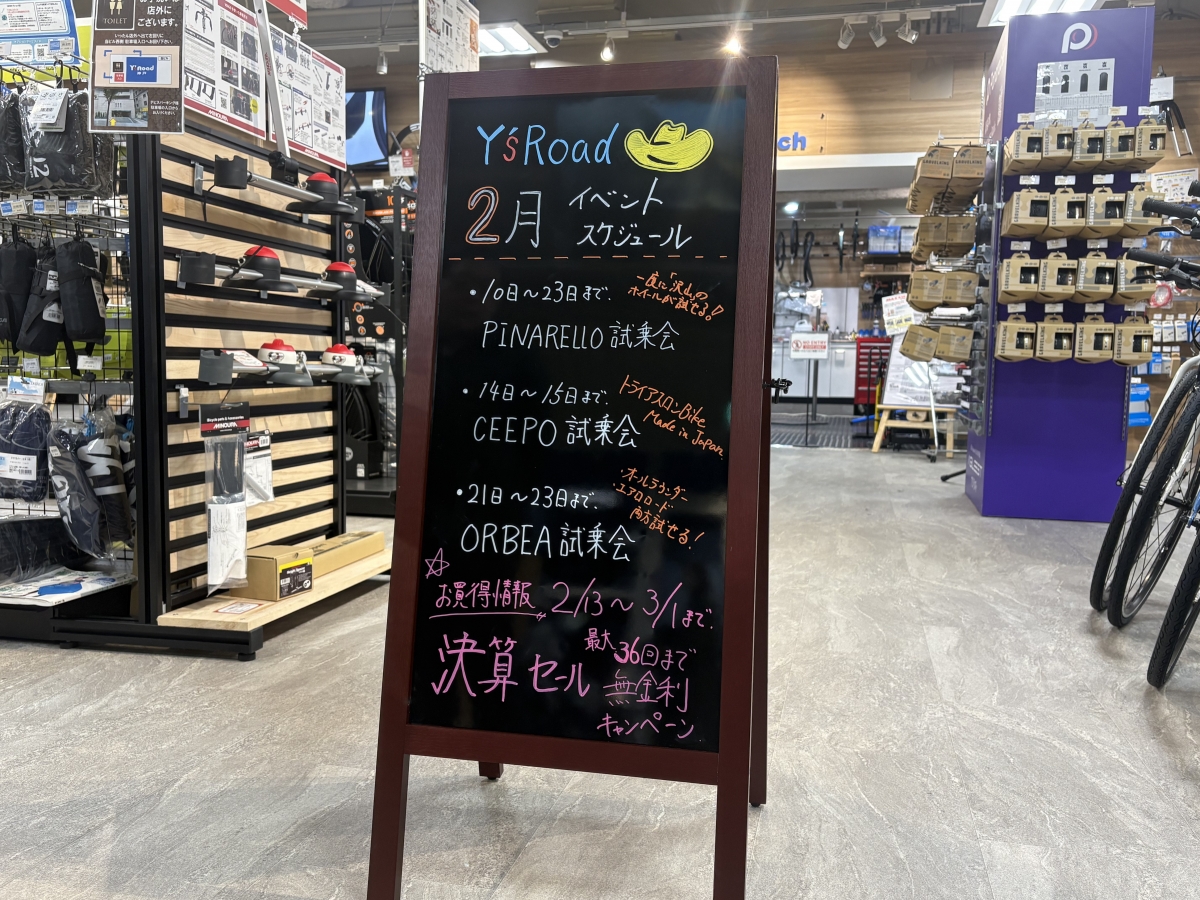 TOILET
店外に
ございます。
Y'sRoad
MINOURA
Y'sRoad
2月
イベント
スケジュール
・10日～23日まで、
一度に「沢山」の
ホイールが試せる!
PiNARELLO 試乗会
・14日～15日まで、
トライアスロンBike
Made in Japan
CEEPO 試乗会
・21日～23日まで、
・オールラウンダー
・エアロロード
両方試せる!
ORBEA 試乗会
☆
お買得情報 2/13～3/1まで.
決算セール
最大36回まで
無金利
キャンペーン
MINOURA
NO ENTRY